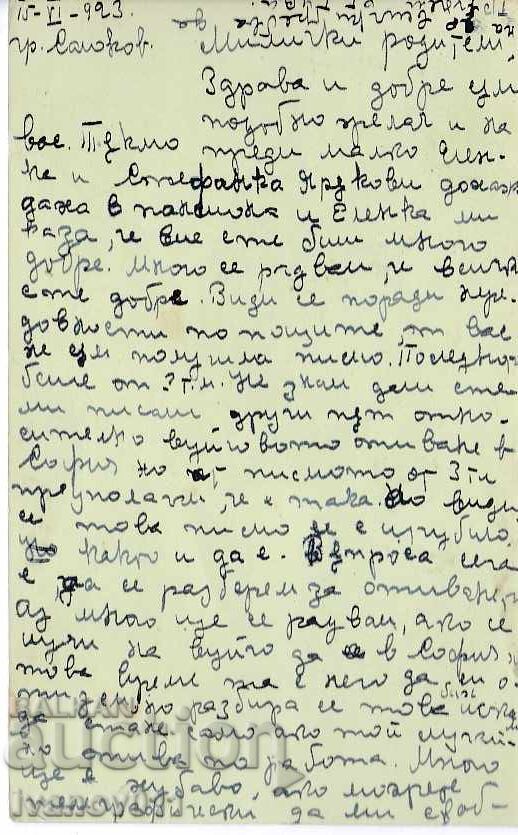 15-VI-923.
гр. Самоков. Милички родители,
Здрава и добре съм
подобно желая и на
вас. Тъкмо преди малко Елен-
ка и Стефанка Яркови дохаж
даха в пансиона и Еленка ми
каза, че вие сте били много
добре. Много се радвам, че всички
сте добре. Види се поради нере-
довности по пощите, от вас
не съм получила писмо. Последното
беше от 3 т.м. Не знам дали сте
ми писали други път отно-
сително вуйчовото отиване в
София но от писмото от 3 тм
предполагам, че е така. Но види
се това писмо се е изгубило.
както и да е. Въпроса сега
е да се разберем за отиването
аз много ще се радвам, ако се
случи на вуйчо да е в София
това време та с него да си о-
тида но разбира се това може би
да стане само ако той случай-
но отива по работа. Много
ще е хубаво, ако можете
телеграфически да ми съоб-
BALKAN
auction
ivanovo